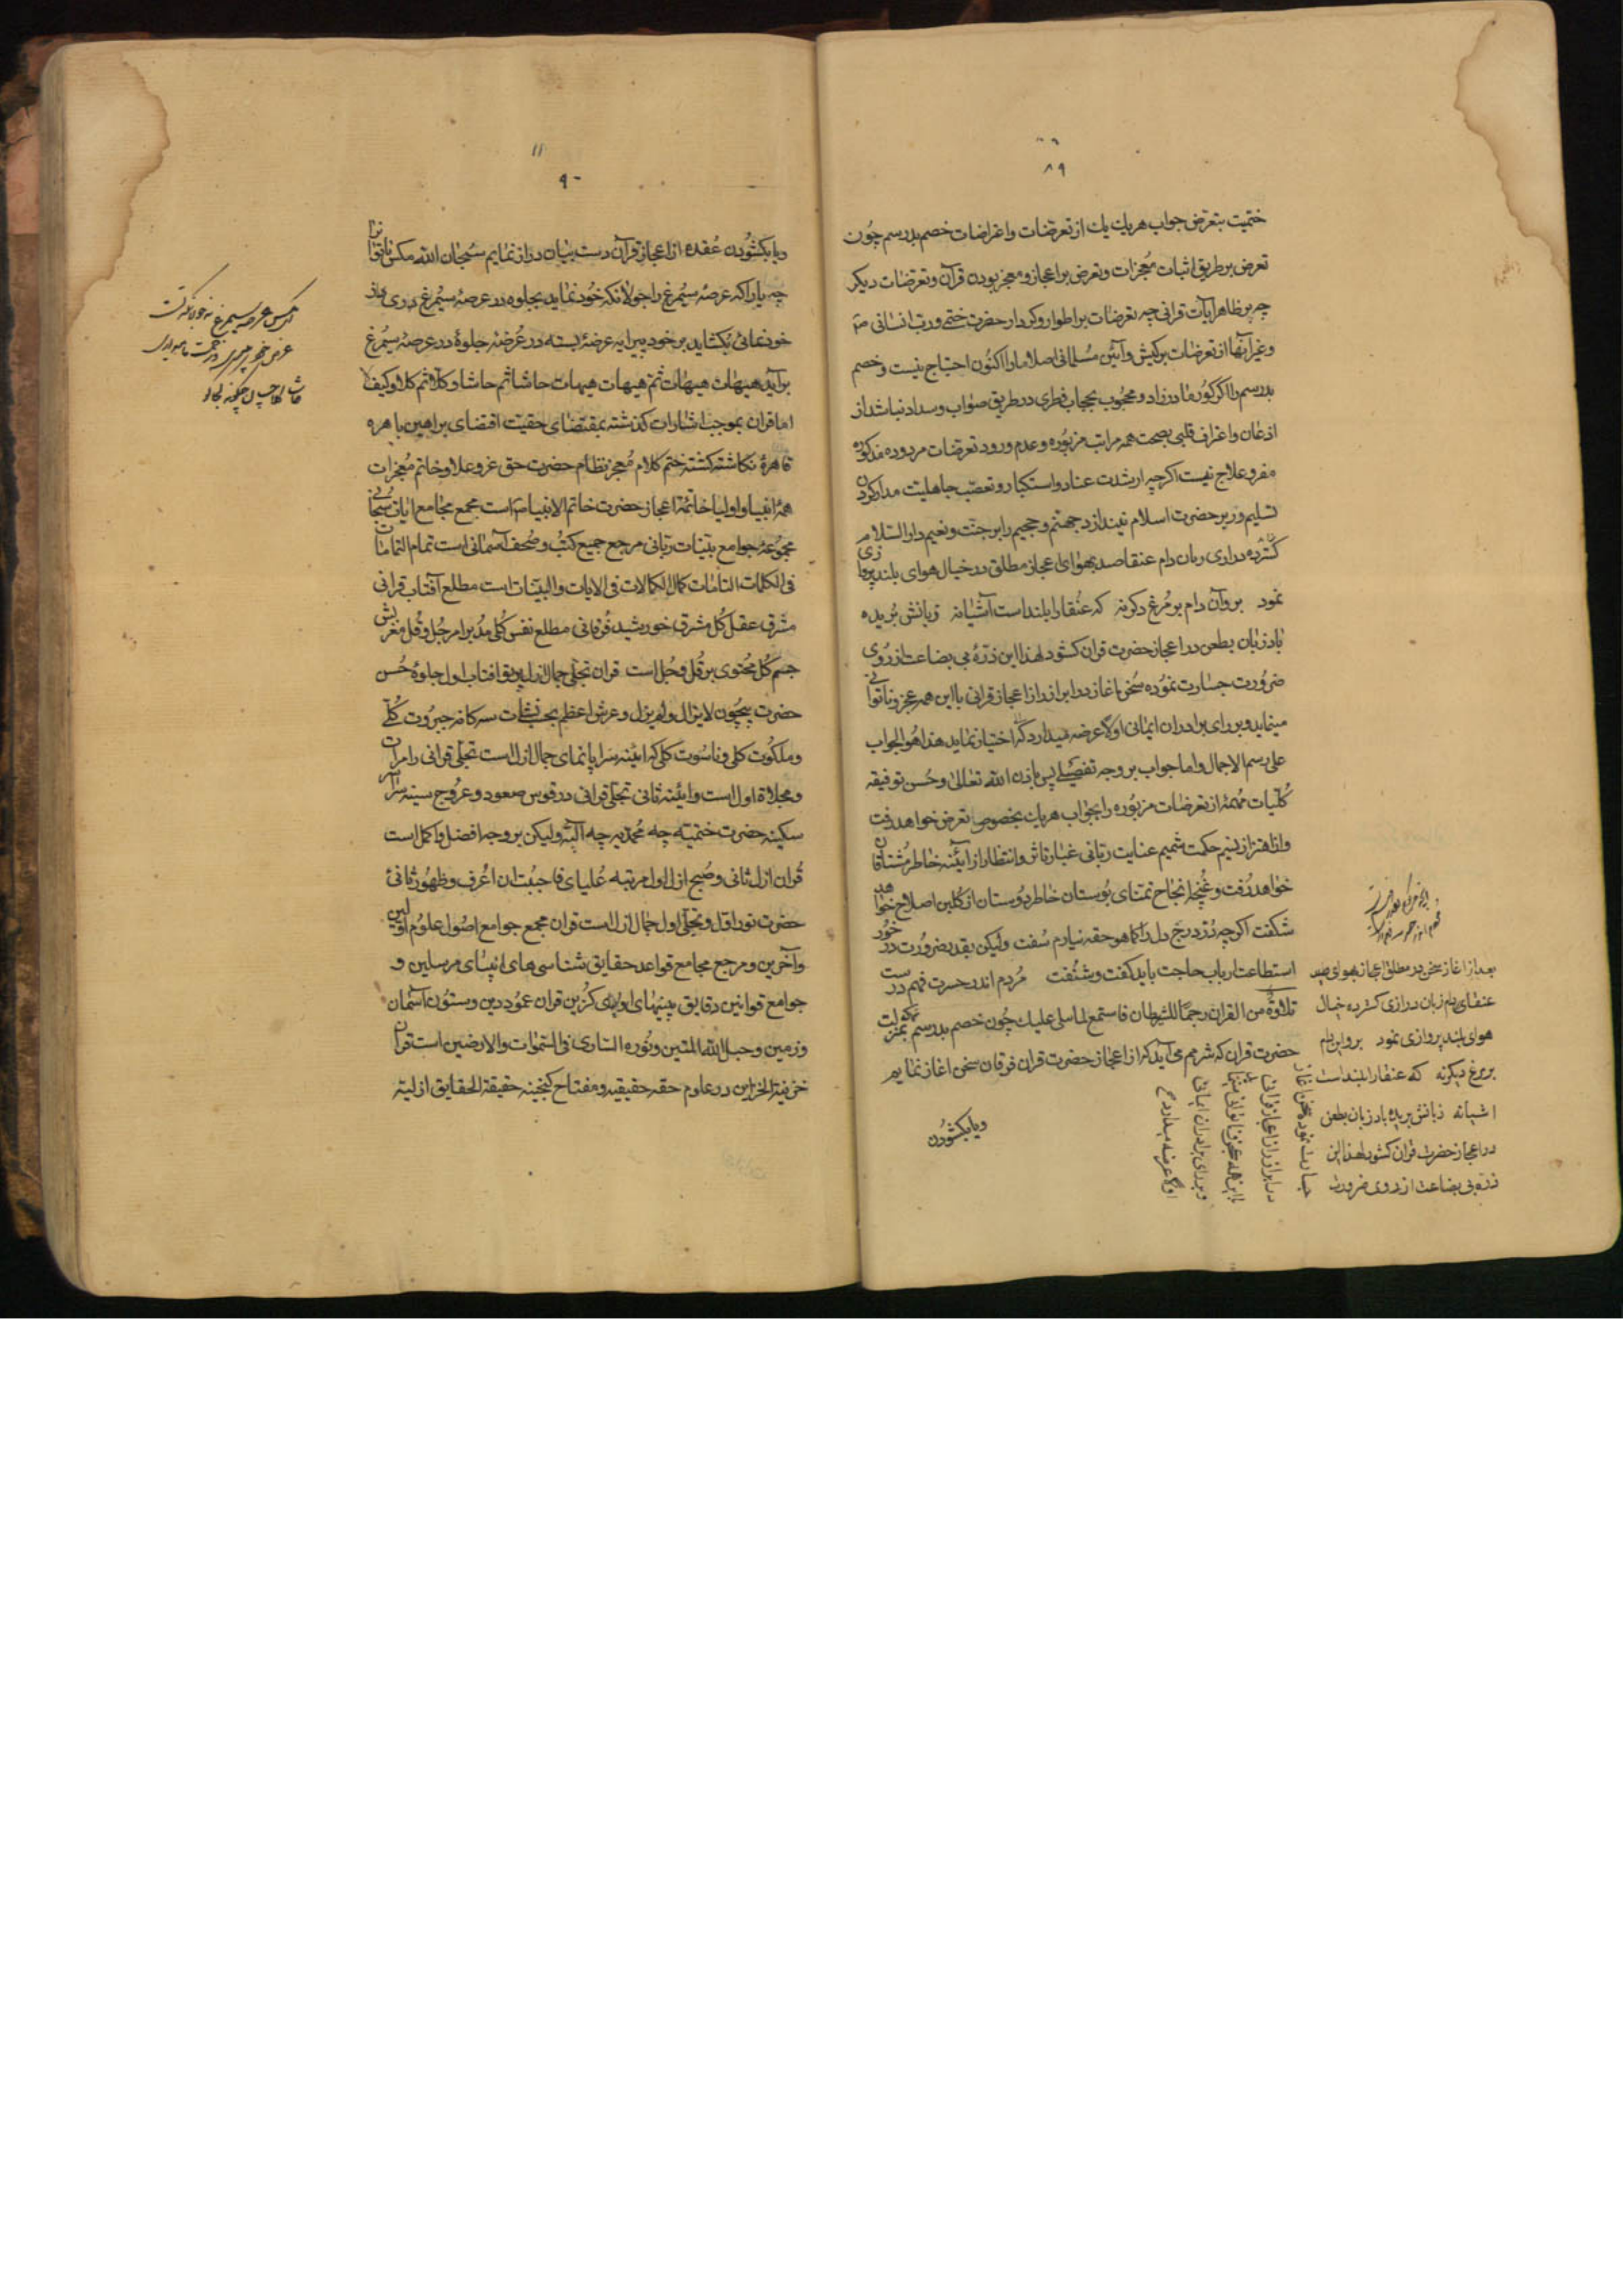 ۸۹
ختمیت بتعرض جواب هر یك یك از تعرضات واعتراضات خصم بدرسم چون
تعرض بر طریق اثبات معجزات وتعرض بر اعجاز ومعجز بودن قرآن وتعرضات دیكر
چه بر ظاهر آیات قرانی چه تعرضات بر اطوار وكردار حضرت ختمی ورتب انسانی
وغیر آنها از تعرضات بر كیش وآئین مسلمانی اصلا ما را اكنون احتیاج نیست وخصم
بدرسم را اكر كور مادرزاد ومحجوب بحجاب فطری در طریق صواب وسداد نباشد از
اذعان واعتراف قلبی بصحت همه مراتب مزبوره وعدم ورود تعرضات مردوده مذكوره
مفر وعلاج نیست اكرچه از شدت عناد واستكبار وتعصب جاهلیت مدار كردن
تسلیم در بر حضرت اسلام نیندازد جهنم وجحیم را بر جنت ونعیم دار السلام
كسترده درازی زبان دام عنقا صید بهوای اعجاز مطلق در خیال هوای بلند پروازی
نمود برو آن دام بر مرغ دكر نه كه عنقا را بلند است آشیانه زبانش بریده
باد زبان بطعن در اعجاز حضرت قران كشود لهذا این ذره بی بضاعت از روی
ضرورت جسارت نموده سخن اغاز در ابراز راز اعجاز قرانی با این همه عجز وناتوانی
مینماید وبر رای برادران ایمانی اولا عرضه میدارد كه اختیار نماید هذا هو الجواب
علی رسم الاجمال واما جواب بر وجه تفصیلی پس باذن الله تعالی وحسن توفیقه
كلیات مهمه از تعرضات مزبوره را بجواب هر یك بخصوص تعرض خواهد رفت
واز اهتزاز نسیم حكمت شمیم عنایت ربانی غبار تاثر وانتظار از آیئنه خاطر مشتاقان
خواهد رفت وغنچه انجاح تمنای بوستان خاطر دوستان از كلبن اصلاح خواهد
شكفت اكرچه نزد رنج دل را كما هو حقه نیارم سفت ولیكن بقدر ضرورت در خور
استطاعت ارباب حاجت باید كفت وشنفت مردم اندر حسرت فهم درست
تلاوة من القران رجما للشیطان فاستمع لما سلی علیك چون خصم بدرسم بمنزلت
حضرت قران كه شرمم می آید كه از اعجاز حضرت قران فرقان سخن اغاز نمایم
ویا بكشودن
بعد از اغاز سخن در مطلق اعجاز بهوای صید
عنقای دام زبان درازی كسترده خیال
هوای بلند پروازی نمود برو این دام
بر مرغ دیكر نه كه عنقا را بلند است
اشیانه زبانش بریده باد زبان بطعن
در اعجاز حضرت قران كشود لهذا این
ذره بی بضاعت از روی ضرورت
جسارت نموده سخن اغاز
در ابراز راز اعجاز قرانی
با این همه عجز وناتوانی
وبر رای برادران ایمانی
اولا عرضه میدارد
۱۱
۹۰
ویا بكشودن عقده از اعجاز قرآن دست بیان دراز نمایم سبحان الله مكس ناتوانرا
چه یارا كه عرصه سیمرغ را جولانكه خود نماید بجلوه در عرصه سیمرغ در وی راز
خود نمائی بكشاید بر خود پیرایه عرضه بسته در عرضه جلوه در عرصه سیمرغ
برآید هیهات هیهات ثم هیهات هیهات حاشا ثم حاشا وكلا ثم كلا وكیف لا
اما قران بموجب اشارات كذشته بمقتضای حقیت اقتضای براهین باهره
قاهره نكاشته كشته ختم كلام معجز نظام حضرت حق عز وعلا وخاتم معجزات
همه انبیا واولیا خاتمه اعجاز حضرت خاتم الانبیا است مجمع مجامع ایات سبحانی
مجموعه جوامع بینات ربانی مرجع جمیع كتب وصحف آسمانی است تمام التمامات
فی الكلمات التامات كمال الكمالات فی الایات والبینات است مطلع آفتاب قرانی
مشرق عقل كل مشرق خورشید فرقانی مطلع نفس كلی مدبر امر جل وقل مغربش
جسم كل محتوی بر قل وجل است قران تجلی جمال ازل پرتو افتاب اول جلوه حسن
حضرت بیچون لایزال ولم یزل وعرش اعظم سركافه جبروت كلی
وملكوت كلی وناسوت كلی كه ایئنه سراپا نمای جمال ازل است تجلی قرانی را مرات
ومجلاة اول است وایئنه ثانی تجلی قرانی در قوس صعود وعروج سینه سرآسر
سكینه حضرت ختمیته چه محمدیه چه آلیه ولیكن بر وجه افضل واكمل است
قران ازل ثانی وصبح ازل اول مرتبه علیای فاحببت ان اعرف وظهور ثانی
حضرت نور اول وتجلی اول جمال ازل است قران مجمع جوامع اصول علوم اولین
وآخرین ومرجع مجامع قواعد حقایق شناسی های انبیای مرسلین و
جوامع قوانین دقایق بینیهای اولیای كزین قران عمود دین وستون آسمان
وزمین وحبل الله المتین ونوره الساری فی السموات والارضین است قران
خزینة الخزاین درر علوم حقه حقیقیه ومفتاح كنجینه حقیقة الحقایق ازلیته